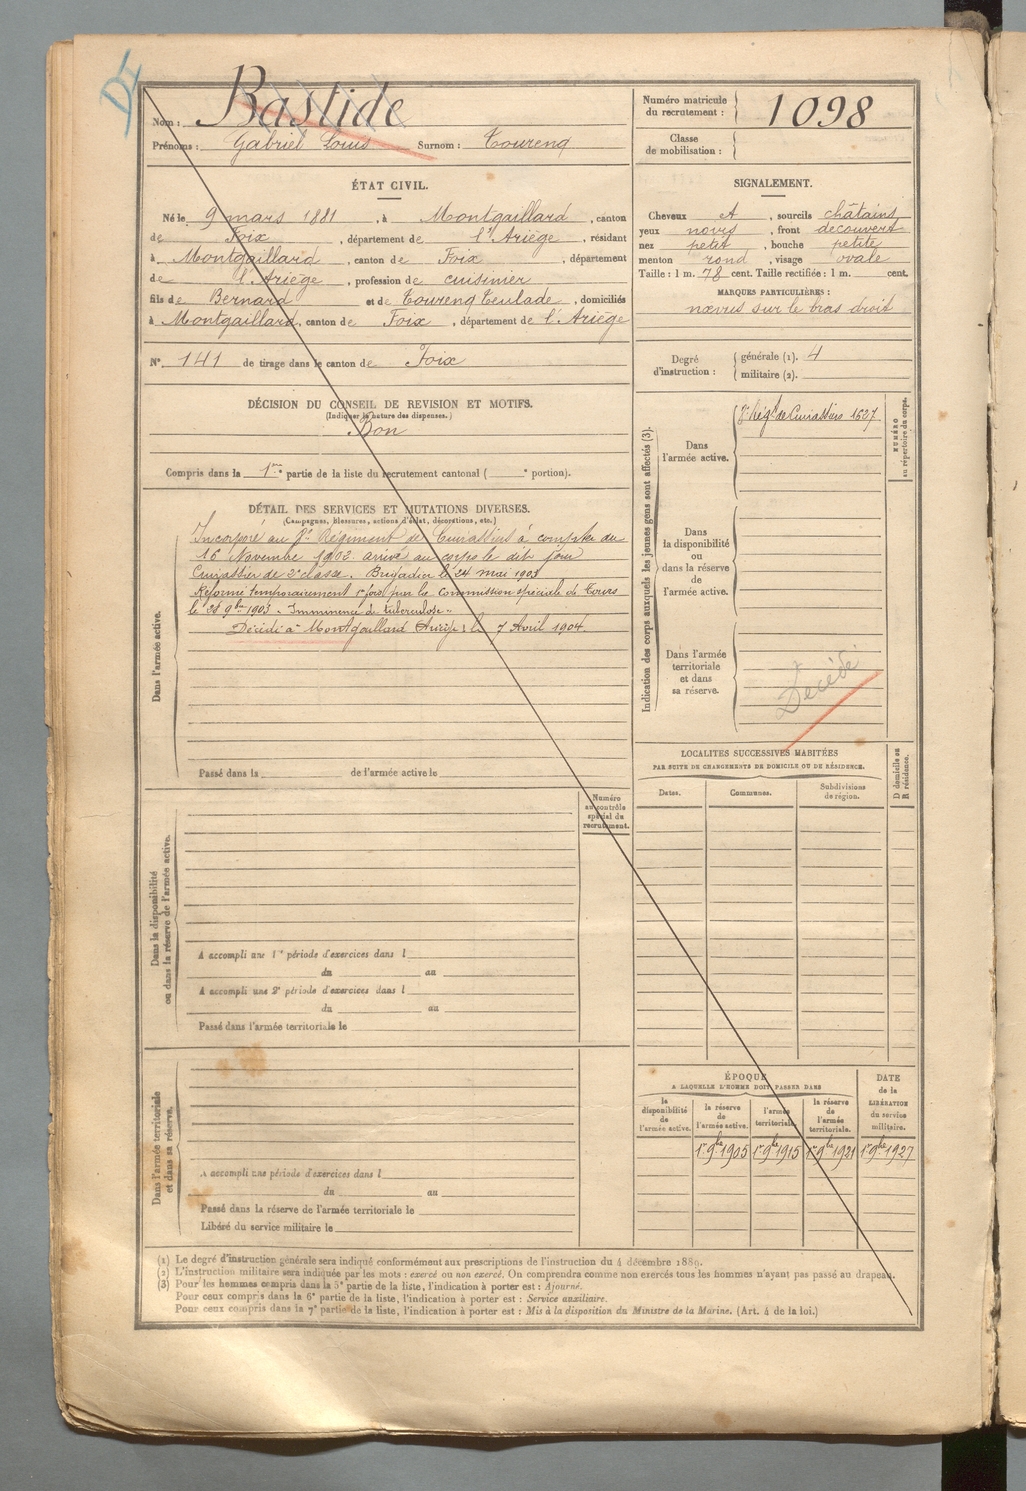 DÉ
Nom : Bastide
Prénoms : Gabriel Louis Surnom : Toureng
Numéro matricule du recrutement : 1098
Classe de mobilisation :
ÉTAT CIVIL.
Né le 9 mars 1881, à Montgaillard, canton
de Foix, département de l'Ariège, résidant
à Montgaillard, canton de Foix, département
de l'Ariège, profession de cuisinier
fils de Bernard et de Toureng Teulade, domiciliés
à Montgaillard, canton de Foix, département de l'Ariège
N° 141 de tirage dans le canton de Foix
SIGNALEMENT.
Cheveux A, sourcils châtains
yeux noirs, front découvert
nez petit, bouche petite
menton rond, visage ovale
Taille : 1 m. 78 cent. Taille rectifiée : 1 m. cent.
MARQUES PARTICULIÈRES :
nœvus sur le bras droit
Degré d'instruction : générale (1). 4
militaire (2).
DÉCISION DU CONSEIL DE REVISION ET MOTIFS.
(Indiquer la nature des dispenses.)
Bon
Compris dans la 1re partie de la liste du recrutement cantonal ( e portion).
DÉTAIL DES SERVICES ET MUTATIONS DIVERSES.
(Campagnes, blessures, actions d'éclat, décorations, etc.)
Dans l'armée active.
Incorporé au Régiment de Cuirassiers à compter du
16 Novembre 1902. arrivé au corps le dit jour
Cuirassier de 2e classe. Brigadier le 24 mai 1903
Réformé temporairement 1e fois par la Commission spéciale de Tours
le 28 9bre 1903 "Imminence de tuberculose"
Décédé à Montgaillard (Ariège) le 7 Avril 1904.
Passé dans la de l'armée active le
Indication des corps auxquels les jeunes gens sont affectés (3).
Dans l'armée active.
Régt de Cuirassiers 1537
NUMÉRO au répertoire du corps.
Dans la disponibilité ou dans la réserve de l'armée active.
Dans l'armée territoriale et dans sa réserve.
Décédé
LOCALITÉS SUCCESSIVES HABITÉES
PAR SUITE DE CHANGEMENTS DE DOMICILE OU DE RÉSIDENCE.
Dates. Communes. Subdivisions de région.
D domicile ou R résidence.
Dans la disponibilité ou dans la réserve de l'armée active.
Numéro au contrôle spécial du recrutement.
A accompli une 1re période d'exercices dans l
du au
A accompli une 2e période d'exercices dans l
du au
Passé dans l'armée territoriale le
Dans l'armée territoriale et dans sa réserve.
A accompli une période d'exercices dans l
du au
Passé dans la réserve de l'armée territoriale le
Libéré du service militaire le
ÉPOQUE
A LAQUELLE L'HOMME DOIT PASSER DANS
la disponibilité de l'armée active.
la réserve de l'armée active.
l'armée territoriale.
la réserve de l'armée territoriale.
DATE de la LIBÉRATION du service militaire.
1er 9bre 1905 1er 9bre 1915 1er 9bre 1921 1er 9bre 1927
(1) Le degré d'instruction générale sera indiqué conformément aux prescriptions de l'instruction du 4 décembre 1889.
(2) L'instruction militaire sera indiquée par les mots : exercé ou non exercé. On comprendra comme non exercés tous les hommes n'ayant pas passé au drapeau.
(3) Pour les hommes compris dans la 5e partie de la liste, l'indication à porter est : Ajourné.
Pour ceux compris dans la 6e partie de la liste, l'indication à porter est : Service auxiliaire.
Pour ceux compris dans la 7e partie de la liste, l'indication à porter est : Mis à la disposition du Ministre de la Marine. (Art. 4 de la loi.)